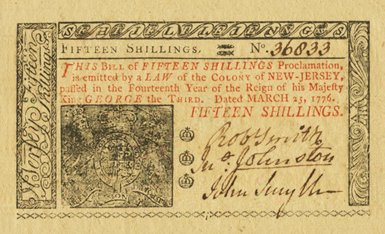 FIFTEEN SHILLINGS. No. 36833
THIS BILL of FIFTEEN SHILLINGS Proclamation,
is emitted by a LAW of the COLONY of NEW-JERSEY,
passed in the Fourteenth Year of the Reign of his Majesty
King GEORGE the THIRD. Dated MARCH 25, 1776.
FIFTEEN SHILLINGS.
Robt Smith
Jno Johnston
John Smyth